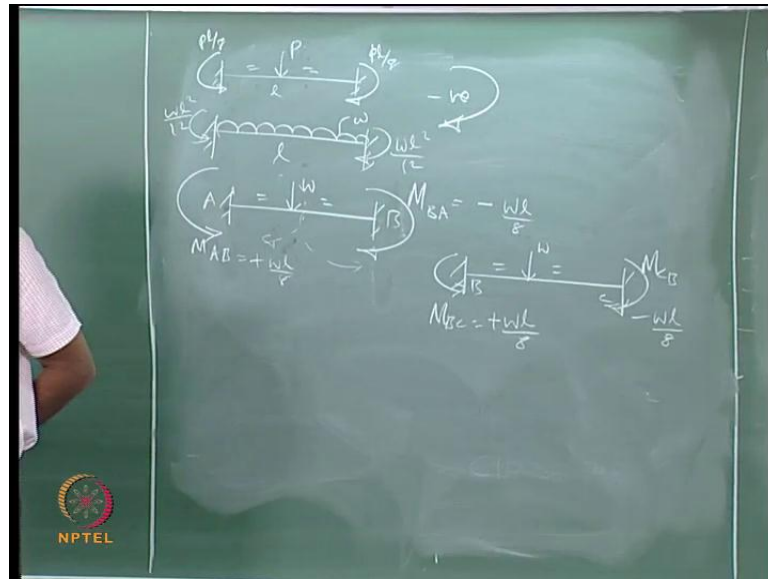 Pl/8 P Pl/8
= =
l
-ve
wl²/12 w wl²/12
l
A = W = B M_BA = - Wl/8
M_AB = + Wl/8
B = W = C M_CB
M_BC = + Wl/8 - Wl/8
NPTEL